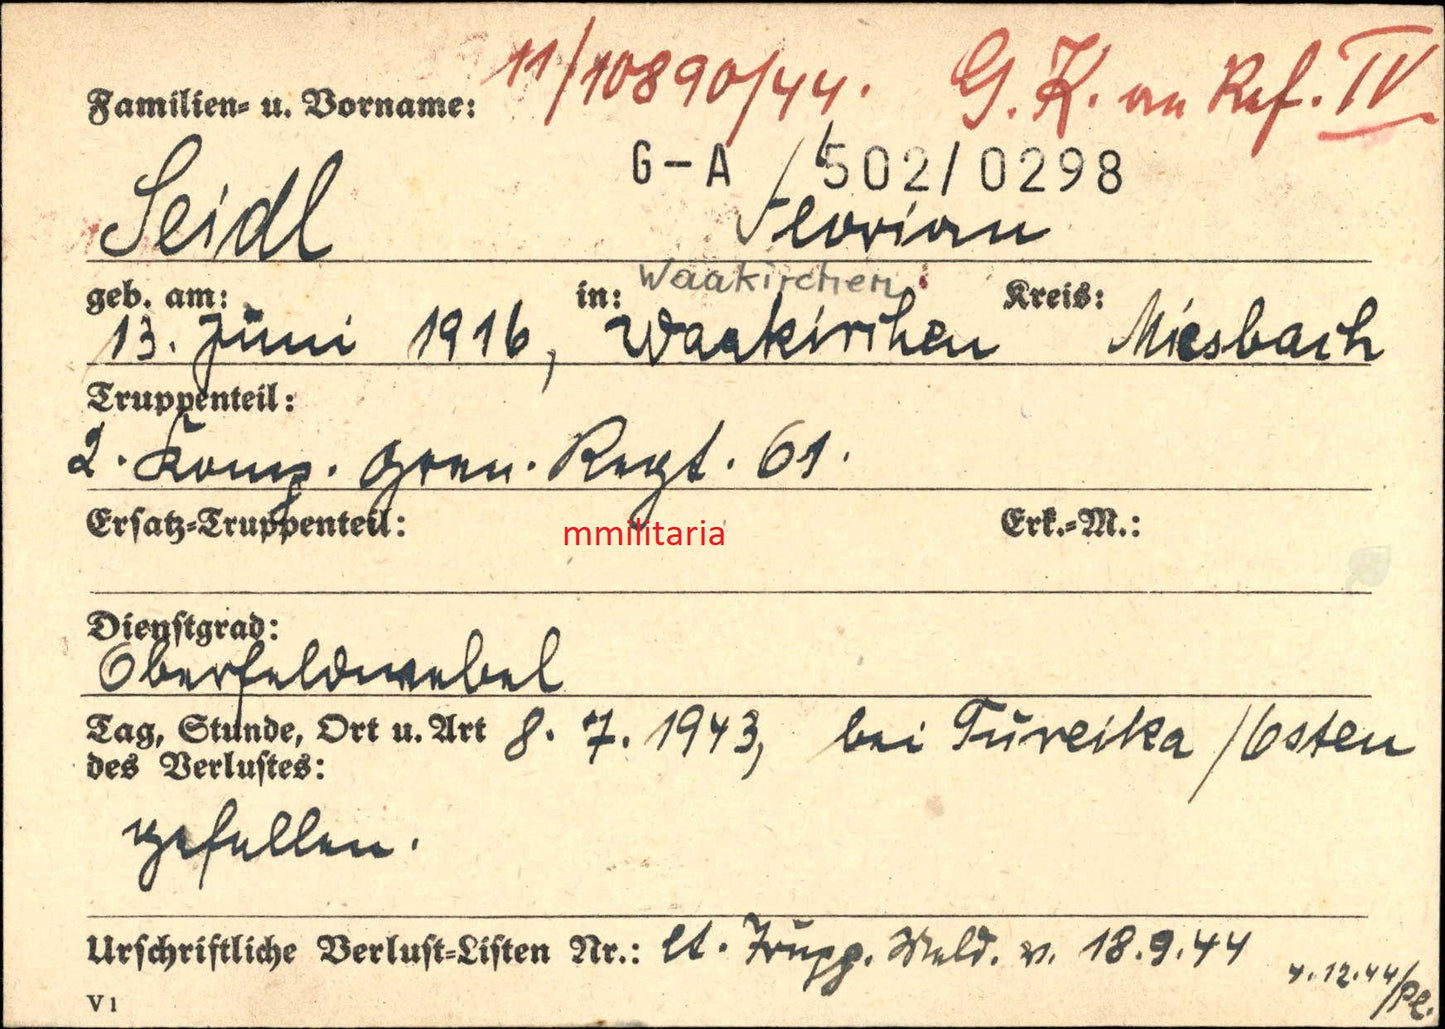 11/10890/44. G. K. an Ref. IV
Familien- u. Vorname:
G-A /502/0298
Seidl Florian
Waakirchen
geb. am: in: Kreis:
13. Juni 1916, Waakirchen Miesbach
Truppenteil:
2. Komp. Gren. Regt. 61.
Ersatz-Truppenteil: mmilitaria Erk.-M.:
Dienstgrad:
Oberfeldwebel
Tag, Stunde, Ort u. Art 8. 7. 1943, bei Tureika /Osten
des Verlustes:
gefallen.
Urschriftliche Verlust-Listen Nr.: lt. Trupp. Meld. v. 18.9.44
4.12.44/Pl.
V 1